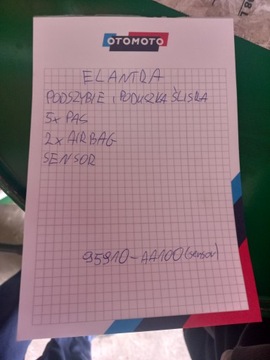 OTOMOTO
ELANTRA
PODSZYBIE i PODUSZKA ŚLISKA
5x PAS
2x AIRBAG
SENSOR
95910-AA100 (sensor)